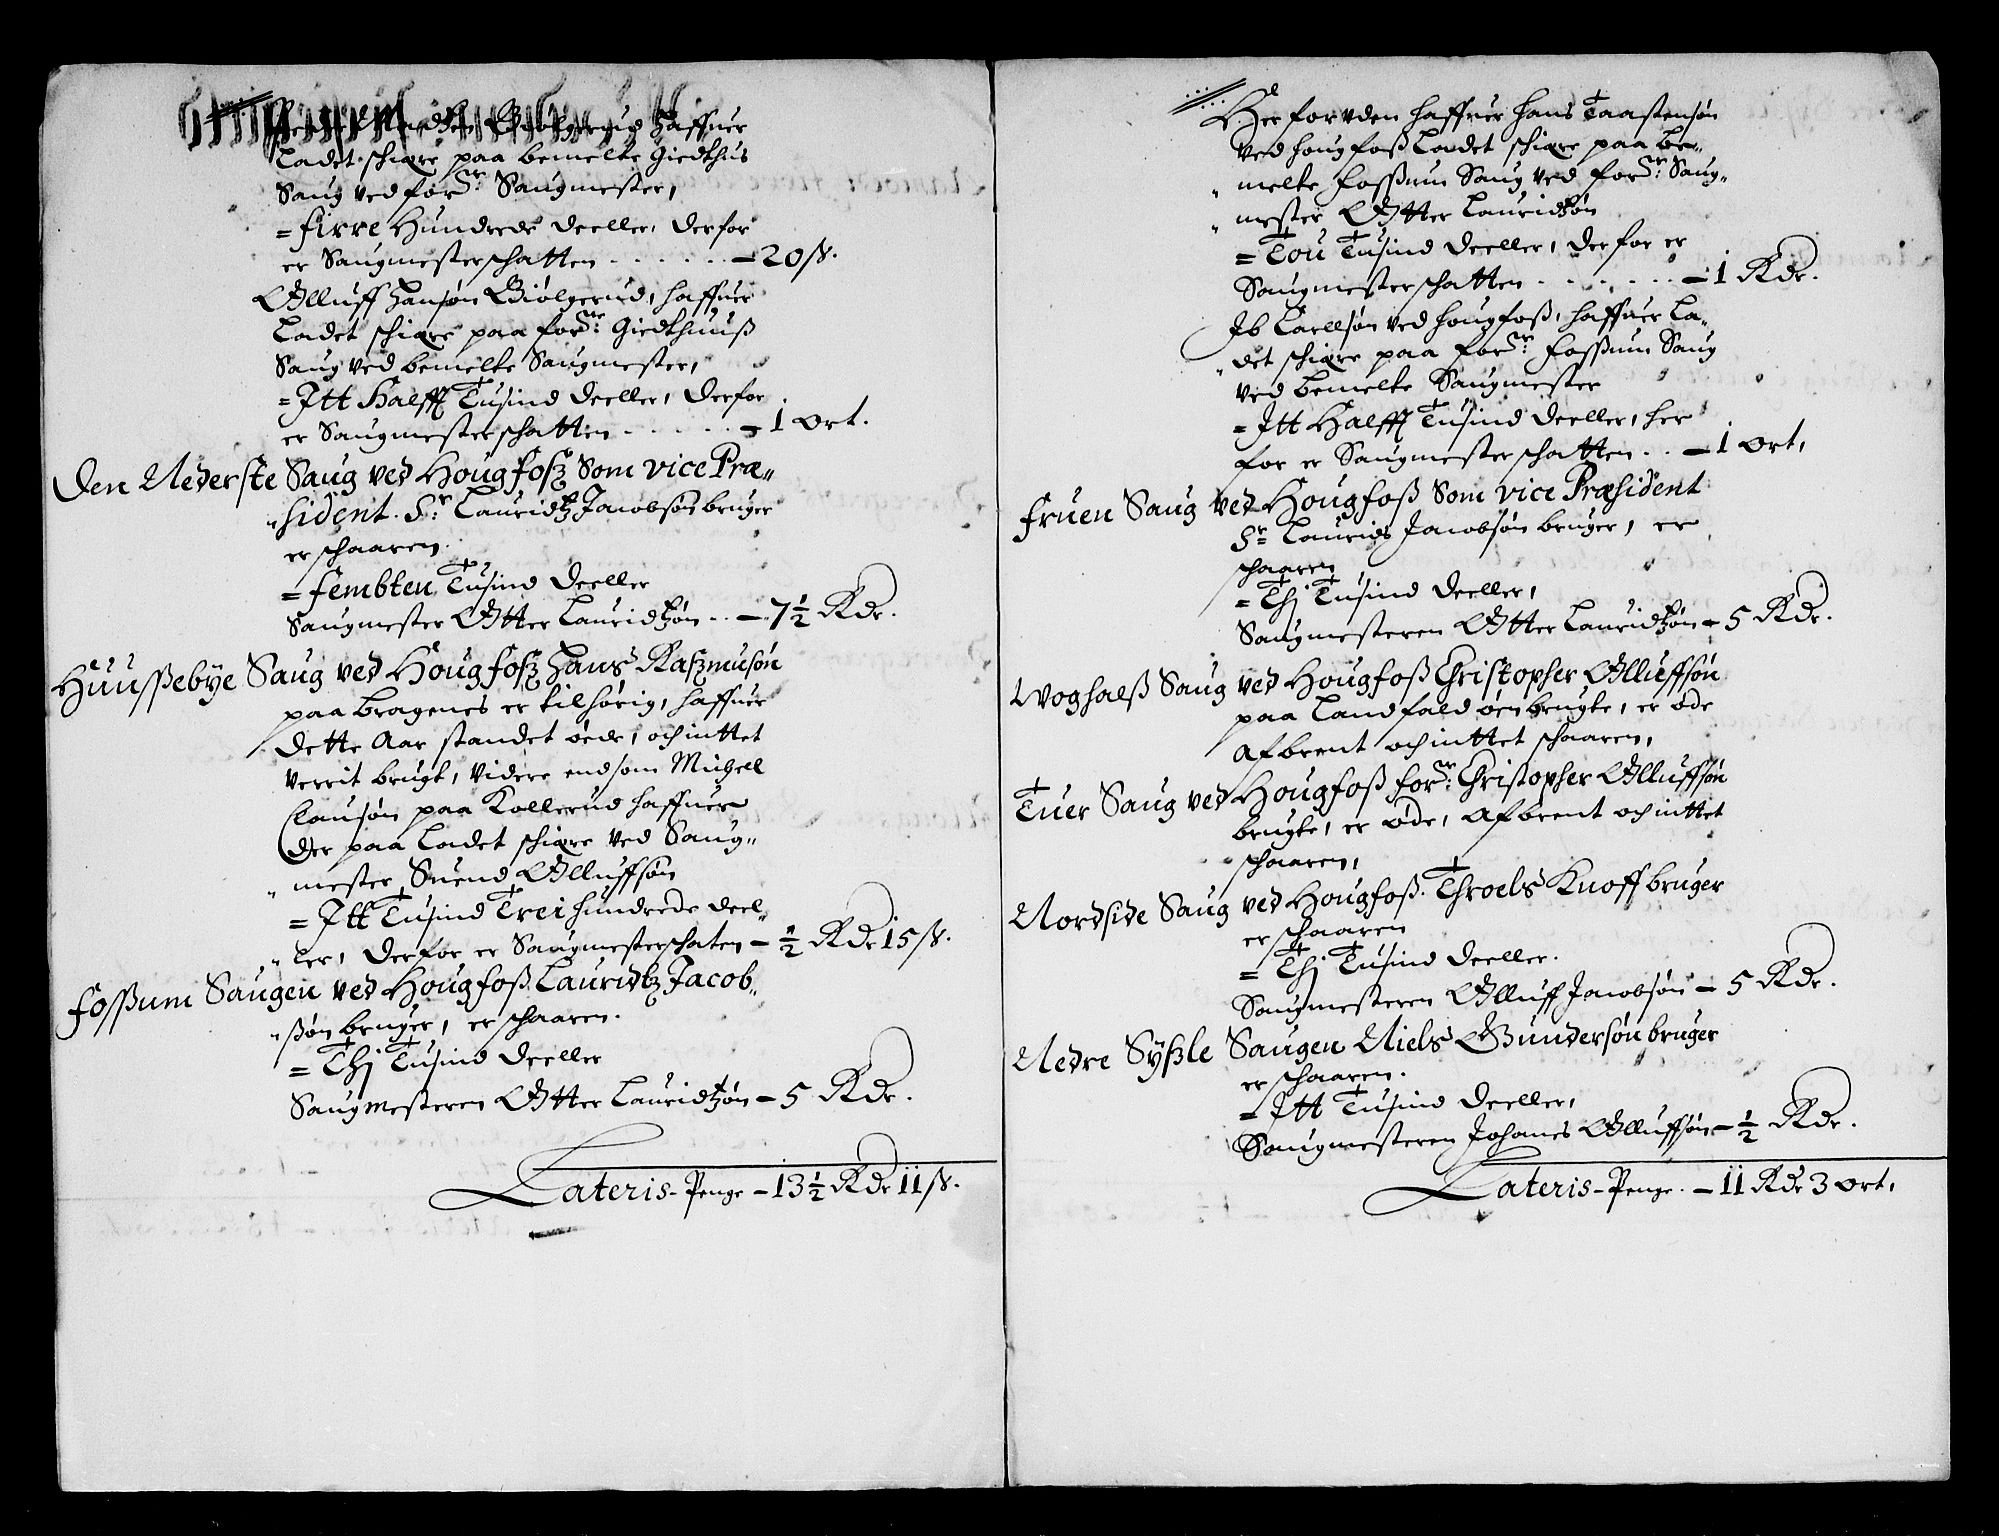 haffuer
Ladet schiære paa bemelte Giedthus
Saug ved forⁿᵉ: Saugmester,
= firre Hundrede Deeller, Derfor
er Saugmesterschatten . . . . . . – 20 ß.
Olluff Hansøn Giølgerud, haffuer
Ladet schiære paa forⁿᵉ: Giedthuuß
Saug ved bemelte Saugmester,
= Itt Halfft Tusind Deeller, Derfor
er Saugmesterschatten . . . . . – 1 ort.
Den Nederste Saug ved Hougfosz Som vice Præ„
„sident. Sʳ: Lauridtz Jacobsøn bruger
er schaaren.
= fembten Tusind Deeller
Saugmester Otter Lauridtzøn . . – 7½ Rdr.
Huussebye Saug ved Hougfosz Hans Raszmusøn
paa bragenes er tilhørig, haffuer
Dette Aar standet øede, och inttet
verrit brugt, Videre end som Michell
Clausøn paa Kollerud haffuer
Der paa Ladet schiære ved Saug„
„mester Suend Olluffsøn
= Itt Tusind Trei hundrede Deel„
„ler, Derfor er Saugmesterschaten – ½ Rdr 15 ß.
Fossum Saugen ved Hougfoß Lauridtz Jacob„
„ßøn bruger, er schaaren.
= Thj Tusind Deeller
Saugmesteren Otter Lauridtzøn – 5 Rdr.
Lateris – Penge – 13½ Rdr 11 ß.
Her foruden haffuer Hans Taastensøn
ved Hougfoß Ladet schiære paa be„
„melte Fossum Saug ved forⁿᵉ: Saug„
„mester Otter Lauridtzøn
= Tou Tusind Deeller, Derfor er
Saugmesterschatten . . . . . . . – 1 Rdr.
Ib Carllsøn ved Hougfoß, haffuer La„
„det schiære paa forⁿᵉ: Fossum Saug
ved bemelte Saugmester
= Itt Halfft Tusind Deeller, her
for er Saugmesterschatten . . – 1 ort,
Fruen Saug ved Hougfoß Som vice Præsident
Sʳ: Laurids Jacobsøn bruger, er
schaaren
= Thj Tusind Deeller,
Saugmesteren Otter Lauridtzøn – 5 Rdr.
Woghalß Saug ved Hougfoß Christopher Olluffsøn
paa Landfald øen brugte, er øde
Afbrent och inttet schaaren,
Tuer Saug ved Hougfoß forⁿᵉ: Christopher Olluffsøn
brugte, er øde, Afbrent och inttet
schaaren,
Nordside Saug ved Hougfoß. Throels Knoff bruger
er schaaren
= Thj Tusind Deeller.
Saugmesteren Olluff Jacobsøn – 5 Rdr.
Nedre Syszle Saugen Niels Gundersøn bruger
er schaaren.
= Itt Tusind Deeller,
Saugmesteren Johanes Olluffsøn – ½ Rdr.
Lateris – Penge. – 11 Rdr 3 ort,